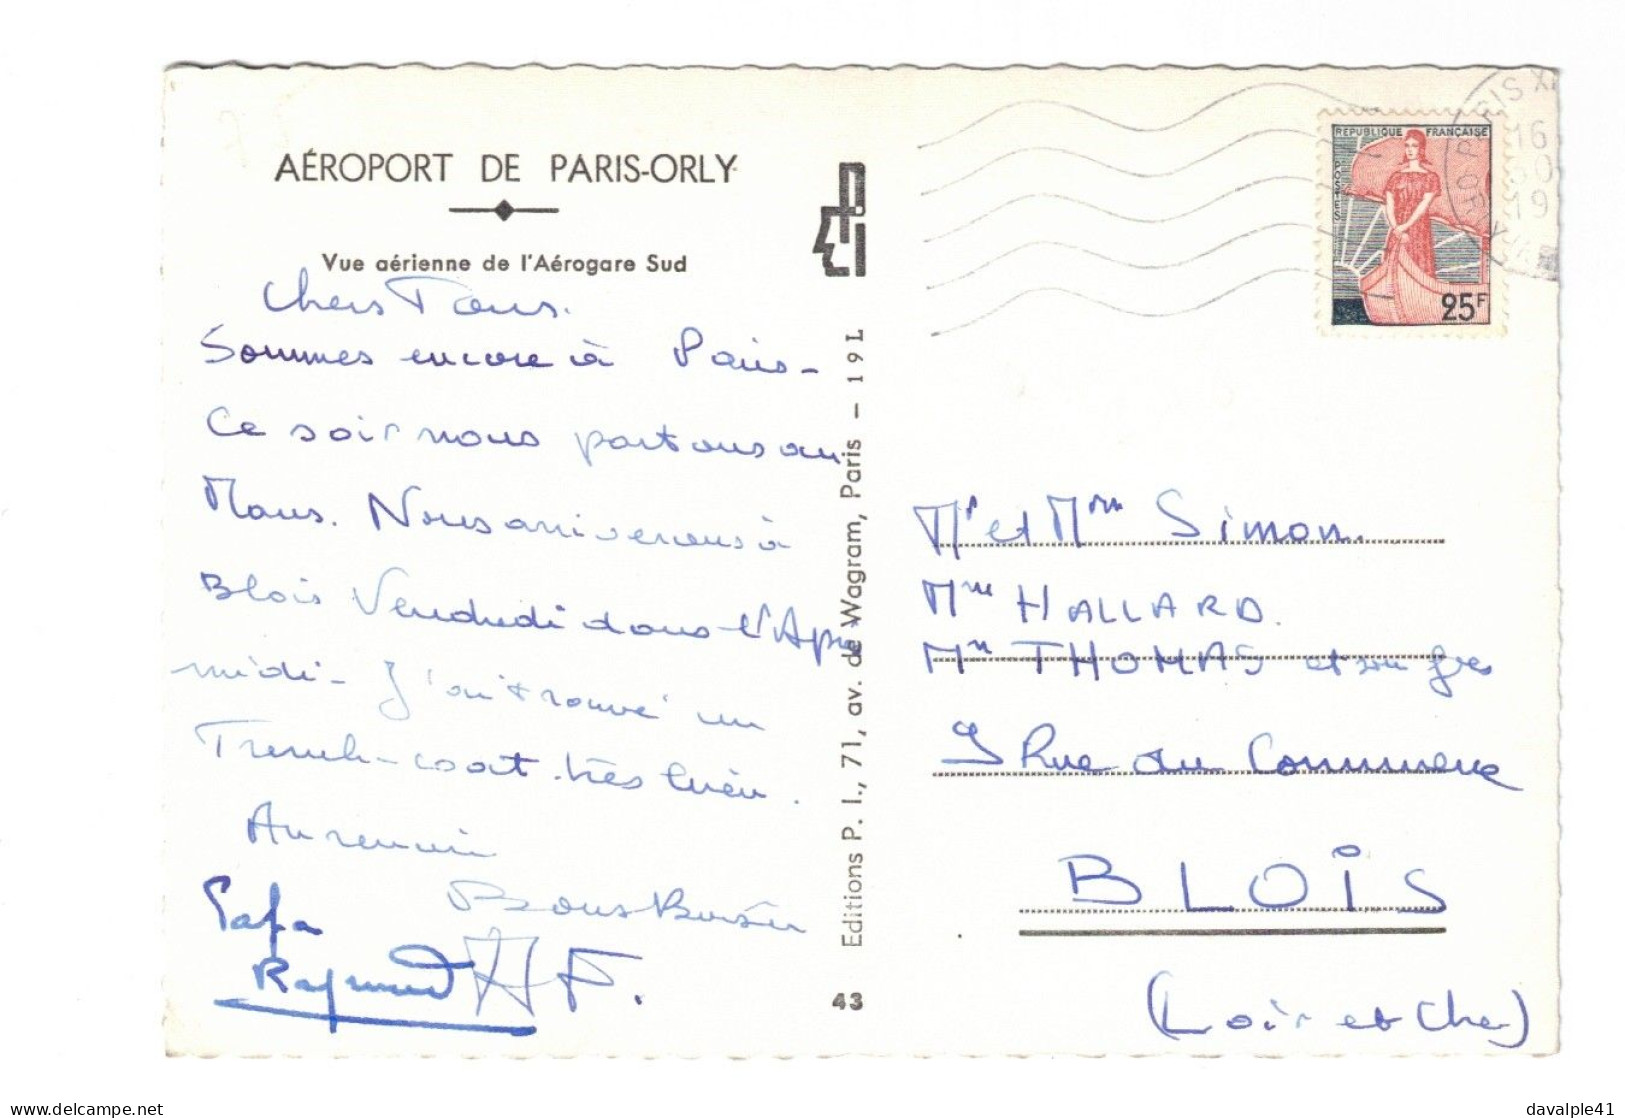 AÉROPORT DE PARIS-ORLY
Vue aérienne de l'Aérogare Sud
Chers Tous.
Sommes encore à Paris-
Ce soir nous partons au
Mans. Nous arriverons à
Blois Vendredi dans l'Après
midi- J'ai trouvé un
Trench-coat très bien.
Au revoir
Bons Baisers
Papa
Raymond
Editions P. I., 71, av. de Wagram, Paris - 19L
43
REPUBLIQUE FRANÇAISE
POSTES
25F
PARIS
16
19
Mr et Mme Simon.
Mme HALLARD.
Mme THOMAS et son
Rue du Commerce
BLOIS
(Loir et Cher)
davalple41